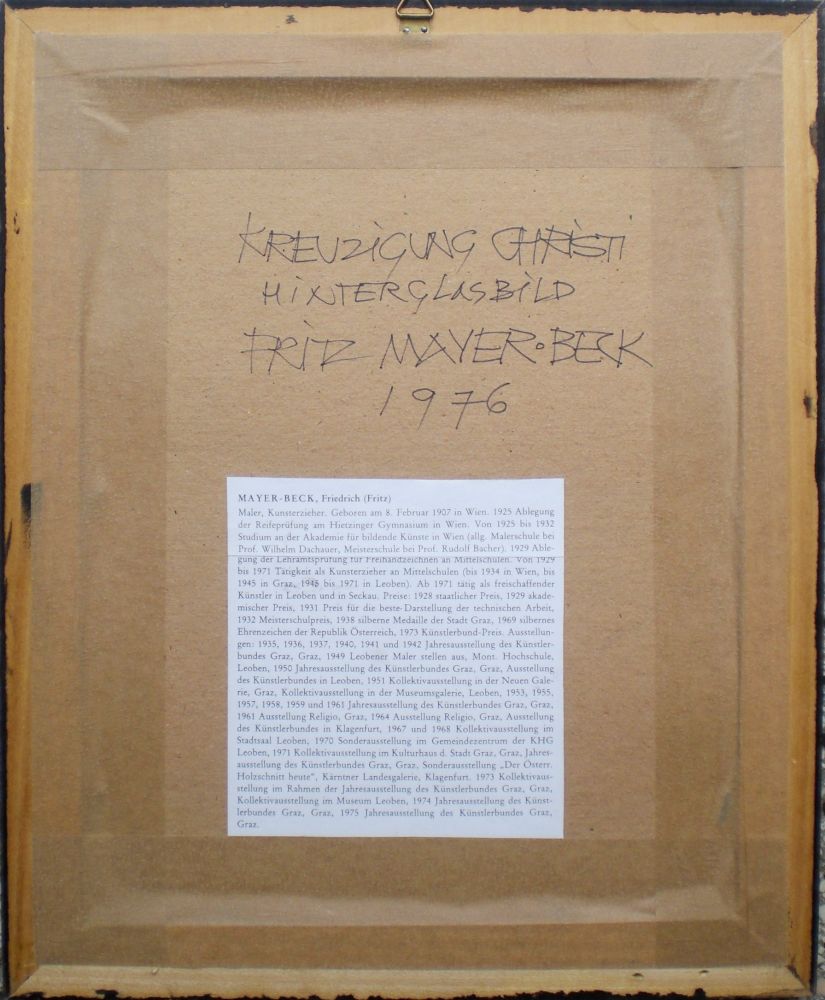 KREUZIGUNG CHRISTI
HINTERGLASBILD
FRITZ MAYER-BECK
1976
MAYER-BECK, Friedrich (Fritz)
Maler, Kunsterzieher. Geboren am 8. Februar 1907 in Wien. 1925 Ablegung
der Reifeprüfung am Hietzinger Gymnasium in Wien. Von 1925 bis 1932
Studium an der Akademie für bildende Künste in Wien (allg. Malerschule bei
Prof. Wilhelm Dachauer, Meisterschule bei Prof. Rudolf Bacher). 1929 Able-
gung der Lehramtsprüfung für Freihandzeichnen an Mittelschulen. Von 1929
bis 1971 Tätigkeit als Kunsterzieher an Mittelschulen (bis 1934 in Wien, bis
1945 in Graz, 1945 bis 1971 in Leoben). Ab 1971 tätig als freischaffender
Künstler in Leoben und in Seckau. Preise: 1928 staatlicher Preis, 1929 akade-
mischer Preis, 1931 Preis für die beste Darstellung der technischen Arbeit,
1932 Meisterschulpreis, 1938 silberne Medaille der Stadt Graz, 1969 silbernes
Ehrenzeichen der Republik Österreich, 1973 Künstlerbund-Preis. Ausstellun-
gen: 1935, 1936, 1937, 1940, 1941 und 1942 Jahresausstellung des Künstler-
bundes Graz, Graz, 1949 Leobener Maler stellen aus, Mont. Hochschule,
Leoben, 1950 Jahresausstellung des Künstlerbundes Graz, Graz, Ausstellung
des Künstlerbundes in Leoben, 1951 Kollektivausstellung in der Neuen Gale-
rie, Graz, Kollektivausstellung in der Museumsgalerie, Leoben, 1953, 1955,
1957, 1958, 1959 und 1961 Jahresausstellung des Künstlerbundes Graz, Graz,
1961 Ausstellung Religio, Graz, 1964 Ausstellung Religio, Graz, Ausstellung
des Künstlerbundes in Klagenfurt, 1967 und 1968 Kollektivausstellung im
Stadtsaal Leoben, 1970 Sonderausstellung im Gemeindezentrum der KHG
Leoben, 1971 Kollektivausstellung im Kulturhaus d. Stadt Graz, Graz, Jahres-
ausstellung des Künstlerbundes Graz, Graz, Sonderausstellung „Der Österr.
Holzschnitt heute“, Kärntner Landesgalerie, Klagenfurt. 1973 Kollektivaus-
stellung im Rahmen der Jahresausstellung des Künstlerbundes Graz, Graz,
Kollektivausstellung im Museum Leoben, 1974 Jahresausstellung des Künst-
lerbundes Graz, Graz, 1975 Jahresausstellung des Künstlerbundes Graz,
Graz.